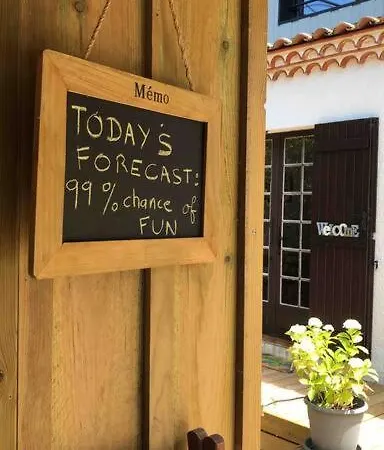 Mémo
TODAY'S
FORECAST:
99% chance of
FUN
WelcOmE